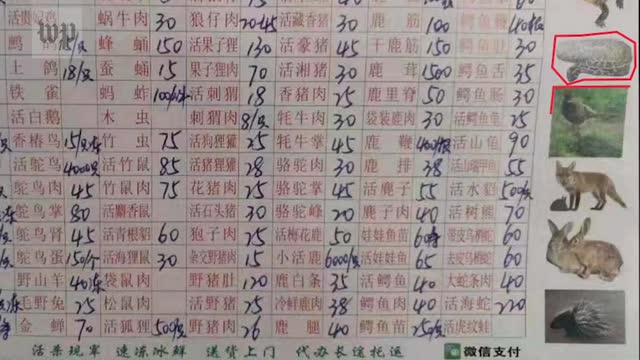 活贵妃鸡 蜗牛肉 30 狼仔肉 20-45 活藏香猪 30 鹿筋 100
wp 蜂蛹 150 活果子狸 130 活豪猪 45 干鹿筋 150 鳄鱼肚 30
土鸽 18/只 蚕蛹 15 果子狸肉 70 活湘猪 30 鹿茸 1500 鳄鱼舌 35
铁雀 蚂蚱 活刺猬 18 香猪肉 25 鹿里脊 50 鳄鱼肠 30
活白鹅 木虫 刺猬肉 8/只 牦牛肉 30 袋装鹿肉 30 25
香椿鸟 15/只 竹虫 75 活狗狸獾 25 牦牛掌 45 鹿鞭 90
活鸵鸟 4000/只 活竹鼠 85 活猪狸獾 28 骆驼肉 30 鹿排 38 55
鸵鸟肉 45 竹鼠肉 75 花猪肉 25 骆驼掌 45 活鹿子 55 活水貂 500/只
鸵鸟掌 80 活麝香鼠 活石头猪 30 骆驼峰 20 鹿子肉 40 活树熊 70
鸵鸟肾 45 活青根貂 60 狍子肉 25 活梅花鹿 50 娃娃鱼苗 60
鸵鸟蛋 活海狸鼠 30 杂交野猪肉 15 小活鹿 6000/只 活娃娃鱼 65 60
野山羊 40 袋鼠肉 野猪肚 120 鹿白条 35 活鳄鱼 40 大蛇条肉 40
毛野兔 25 松鼠肉 活野猪 25 冷鲜鹿肉 38 鳄鱼肉 40 活海蛇 220
金蝉 70 活狐狸 500/只 野猪肉 26 鹿腿 40 鳄鱼苗 250/只 活虎纹蛙
活杀现宰 速冻冰鲜 送货上门 代办长途托运 微信支付